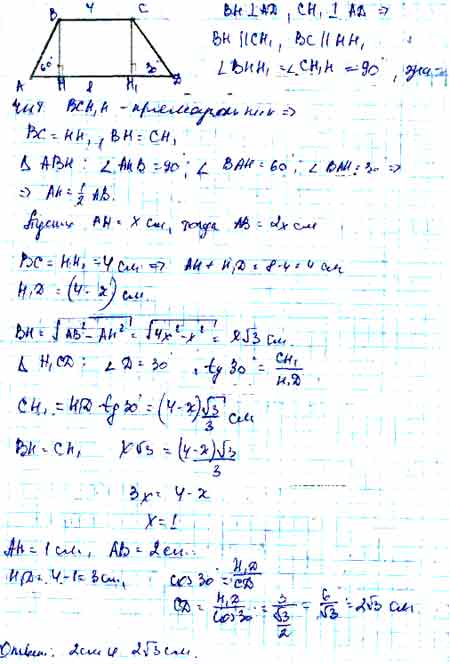 B 4 C
A 60° H 8 H₁ 30° D
BH ⊥ AD, CH₁ ⊥ AD ⇒
BH ∥ CH₁, BC ∥ HH₁
∠BHH₁ = ∠CH₁H = 90°, зна-
чит BCH₁H - прямоугольник ⇒
BC = HH₁, BH = CH₁
Δ ABH: ∠AHB = 90°; ∠BAH = 60°; ∠BAH = 30° ⇒
⇒ AH = 1/2 AB.
Пусть AH = x см, тогда AB = 2x см
BC = HH₁ = 4 см ⇒ AH + H₁D = 8 - 4 = 4 см
H₁D = (4 - x) см.
BH = √(AB² - AH²) = √(4x² - x²) = x√3 см.
Δ H₁CD: ∠D = 30°, tg 30° = CH₁/H₁D
CH₁ = H₁D · tg 30° = (4 - x)√3/3 см
BH = CH₁ x√3 = (4 - x)√3/3
3x = 4 - x
x = 1
AH = 1 см, AB = 2 см.
H₁D = 4 - 1 = 3 см, cos 30° = H₁D/CD
CD = H₁D/cos 30 = 3/(√3/2) = 6/√3 = 2√3 см.
Ответ: 2 см и 2√3 см.